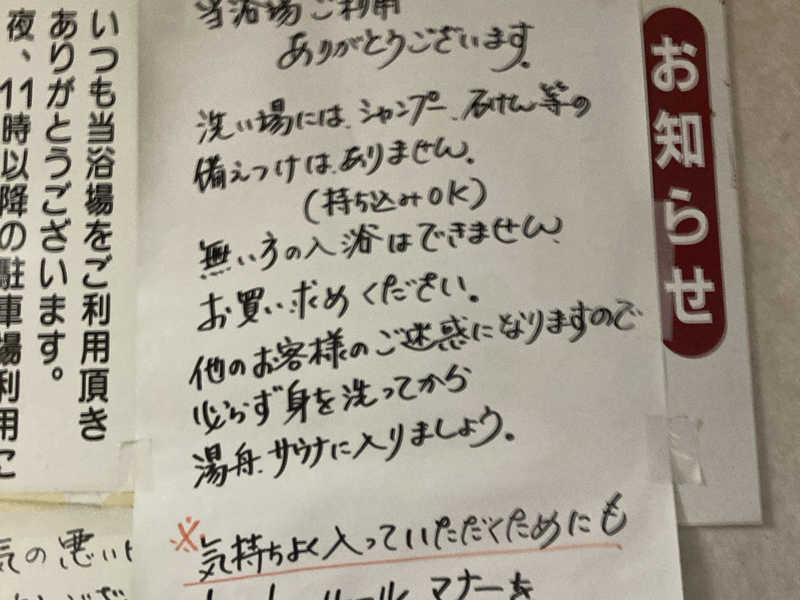 お知らせ
当浴場ご利用
ありがとうございます。
洗い場には、シャンプー、石けん等の
備えつけは、ありません。
(持ち込みOK)
無い方の入浴はできません、
お買い求めください。
他のお客様のご迷惑になりますので
必らず身を洗ってから
湯舟、サウナに入りましょう。
※気持ちよく入っていただくためにも
ルール、マナーを
いつも当浴場をご利用頂き
ありがとうございます。
夜、11時以降の駐車場利用に
気の悪い